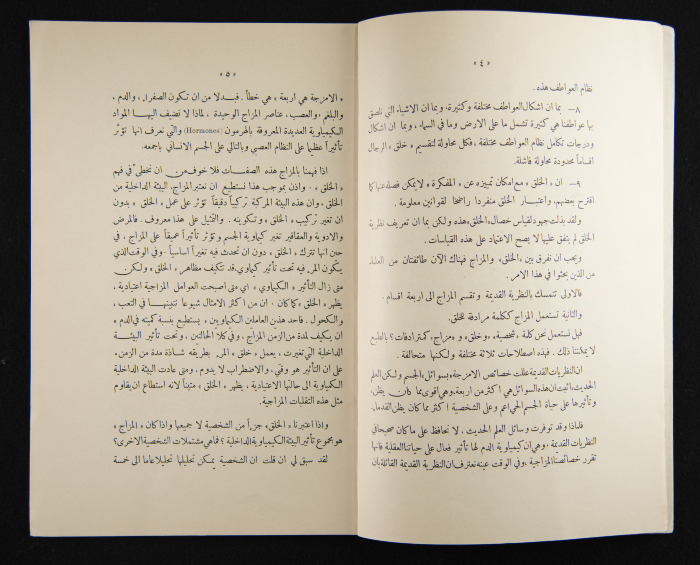 «٤»
نظام العواطف هذه .
٨— بما ان اشكال العواطف مختلفة وكثيرة، وبما ان الاشياء التي تلصق
بها عواطفنا هي كثيرة تشمل ما على الارض وما في السماء، وبما ان اشكال
ودرجات تكامل نظام العواطف مختلفة، فكل محاولة لتقسيم «خلق» الرجال
اقساماً محدودة محاولة فاشلة.
٩— ان «الخلق» مع امكان تمييزه عن «المفكرة» لايمكن فصله عنها كما
اقترح بعضهم، واعتبار الخلق منفردا راضخا لقوانين معلومة .
ولقد بذلت جهود لقياس خصال «الخلق» هذه ولكن بما ان تعريف نظرية
الخلق لم يتفق عليها لا يصح الاعتماد على هذه القياسات .
ويجب ان نفرق بين «الخلق» والمزاج فهناك الآن طائفتان من العلماء
من الذين بحثوا في هذا الامر .
فالاولى تتمسك بالنظرية القديمة وتقسم المزاج الى اربعة اقسام .
والثانية تستعمل المزاج ككلمة مرادفة للخلق.
فهل نستعمل نحن كلمة «شخصية» و«خلق» و«مزاج» كمترادفات؟ بالطبع
لا يمكننا ذلك . فهذه اصطلاحات ثلاثة مختلفة ولكنها متحالفة .
ان النظريات القديمة عللت خصائص الامزجة بسوائل الجسم ولكن العلم
الحديث، اثبت ان هذه السوائل هي اكثر من اربعة، وهي اقوى مما كان يظن،
وتأثيرها على حياة الجسم الحي اعم وعلى الشخصية اكثر مما كان يظن القدماء.
فلماذا وقد توفرت وسائل العلم الحديث . لا نحافظ على ما كان صحيحا في
النظريات القديمة، وهي ان كيمياوية الدم لها تأثير فعال على حياتنا العقلية فانها
تقرر خصائصنا المزاجية، وفي الوقت عينه نعترف ان النظرية القديمة القائلة بان
«٥»
« الامزجة هي اربعة » هي خطأ . فبدلا من ان تكون الصفراء، والدم ،
والبلغم ، والعصب، عناصر المزاج الوحيدة ، لماذا لا نضيف اليها المواد
الكيمياوية العديدة المعروفة بالهرمون (Hormones) والتي نعرف انها تؤثر
تأثيراً عظيما على النظام العصبي وبالتالي على الجسم الانساني باجمعه.
اذا فهمنا بالمزاج هذه الصفات فلا خوف من ان نخطئ في فهم
« الخلق » . واذن بموجب هذا نستطيع ان نعتبر المزاج، البيئة الداخلية من
الخلق ، وان هذه البيئة المركبة تركيباً دقيقاً تؤثر على عمل «الخلق» بدون
ان تغير تركيب « الخلق » وتكوينه . والتمثيل على هذا معروف. فالمرض
والادوية والعقاقير تغير كيماوية الجسم وتؤثر تأثيراً عميقاً على المزاج ، في
حين انها تترك «الخلق» دون ان تحدث فيه تغيراً اساسياً . وفي الوقت الذي
يكون المرء فيه تحت تأثير كيماوي، قد تتكيف مظاهر «الخلق» ولكن
متى زال التأثير « الكيماوي » اي متى اصبحت العوامل المزاجية اعتيادية ،
يظهر «الخلق» كما كان . ان من اكثر الامثال شيوعا نتبينها في التعب ،
والكحول . فاحد هذين العاملين الكيماويين ، يستطيع بنسبة كميته في الدم «
ان يكيف لمدة من الزمن المزاج، وفي كلا الحالتين، وتحت تأثير البيئة
الداخلية التي تغيرت ، يعمل «خلق» المرء بطريقة شاذة مدة من الزمن.
على ان التأثير هو وقتي، والاضطراب لا يدوم، ومتى عادت البيئة الداخلية
الكيماوية الى حالتها الاعتيادية ، يظهر « الخلق » متيناً لانه استطاع ان يقاوم
مثل هذه التقلبات المزاجية.
واذا اعتبرنا «الخلق» جزءاً من الشخصية لا جميعها واذا كان «المزاج»
هو مجموع تأثير البيئة الكيمياوية الداخلية ؟ فما هي مشتملات الشخصية الاخرى؟
لقد سبق لي ان قلت ان الشخصية يمكن تحليلها تحليلا عاما الى خمسة